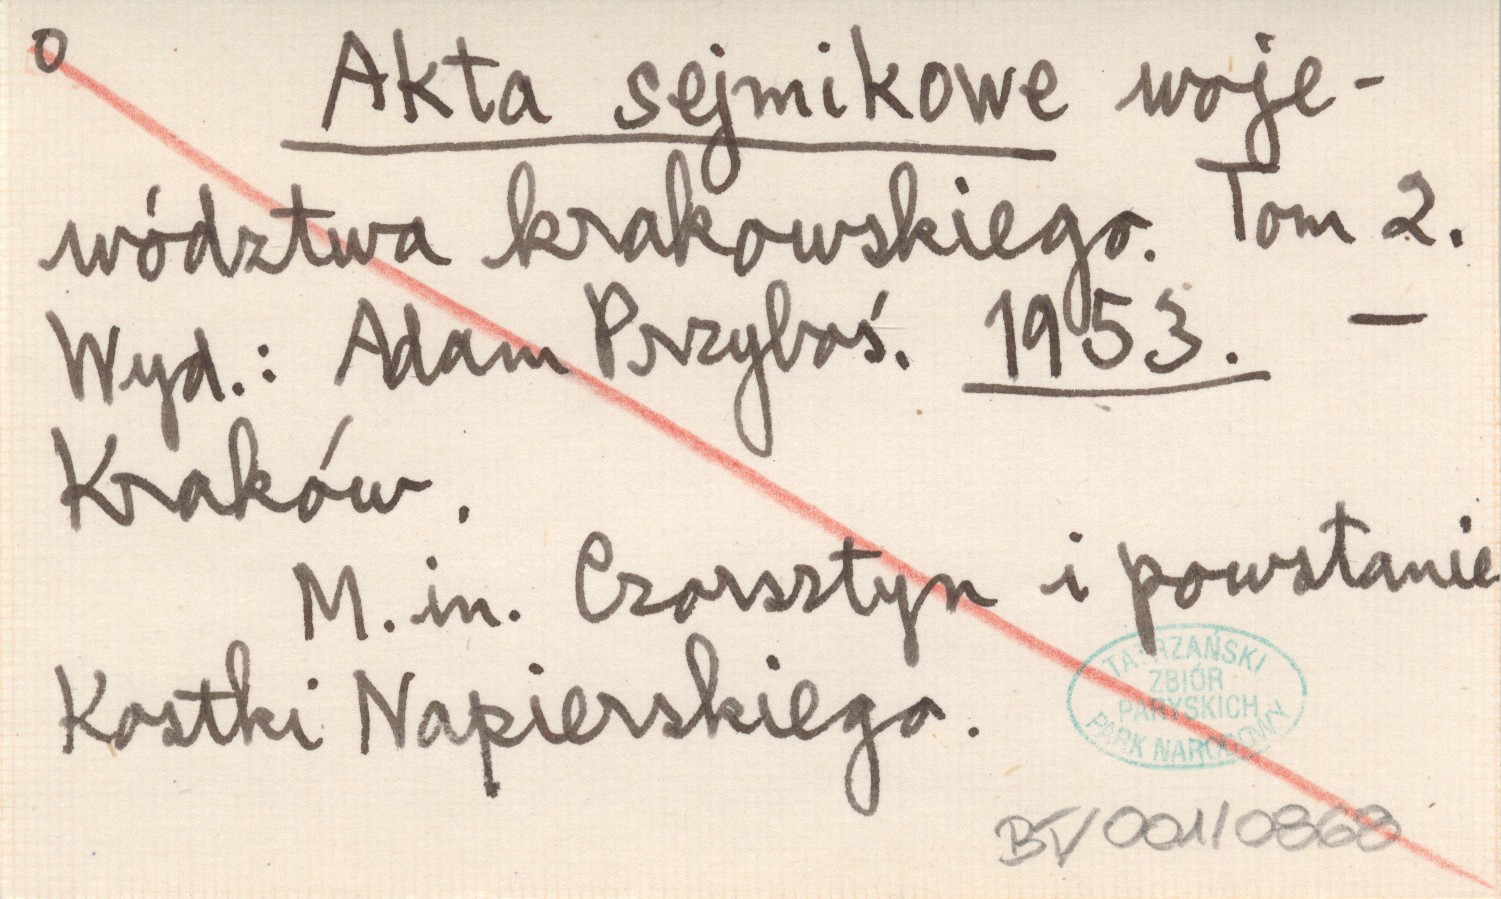 o
Akta sejmikowe woje-
wództwa krakowskiego. Tom 2.
Wyd.: Adam Przyboś. 1953. —
Kraków.
M. in. Czorsztyn i powstanie
Kostki Napierskiego.
TATRZAŃSKI
ZBIÓR
PARYSKICH
PARK NARODOWY
BT/001/0868